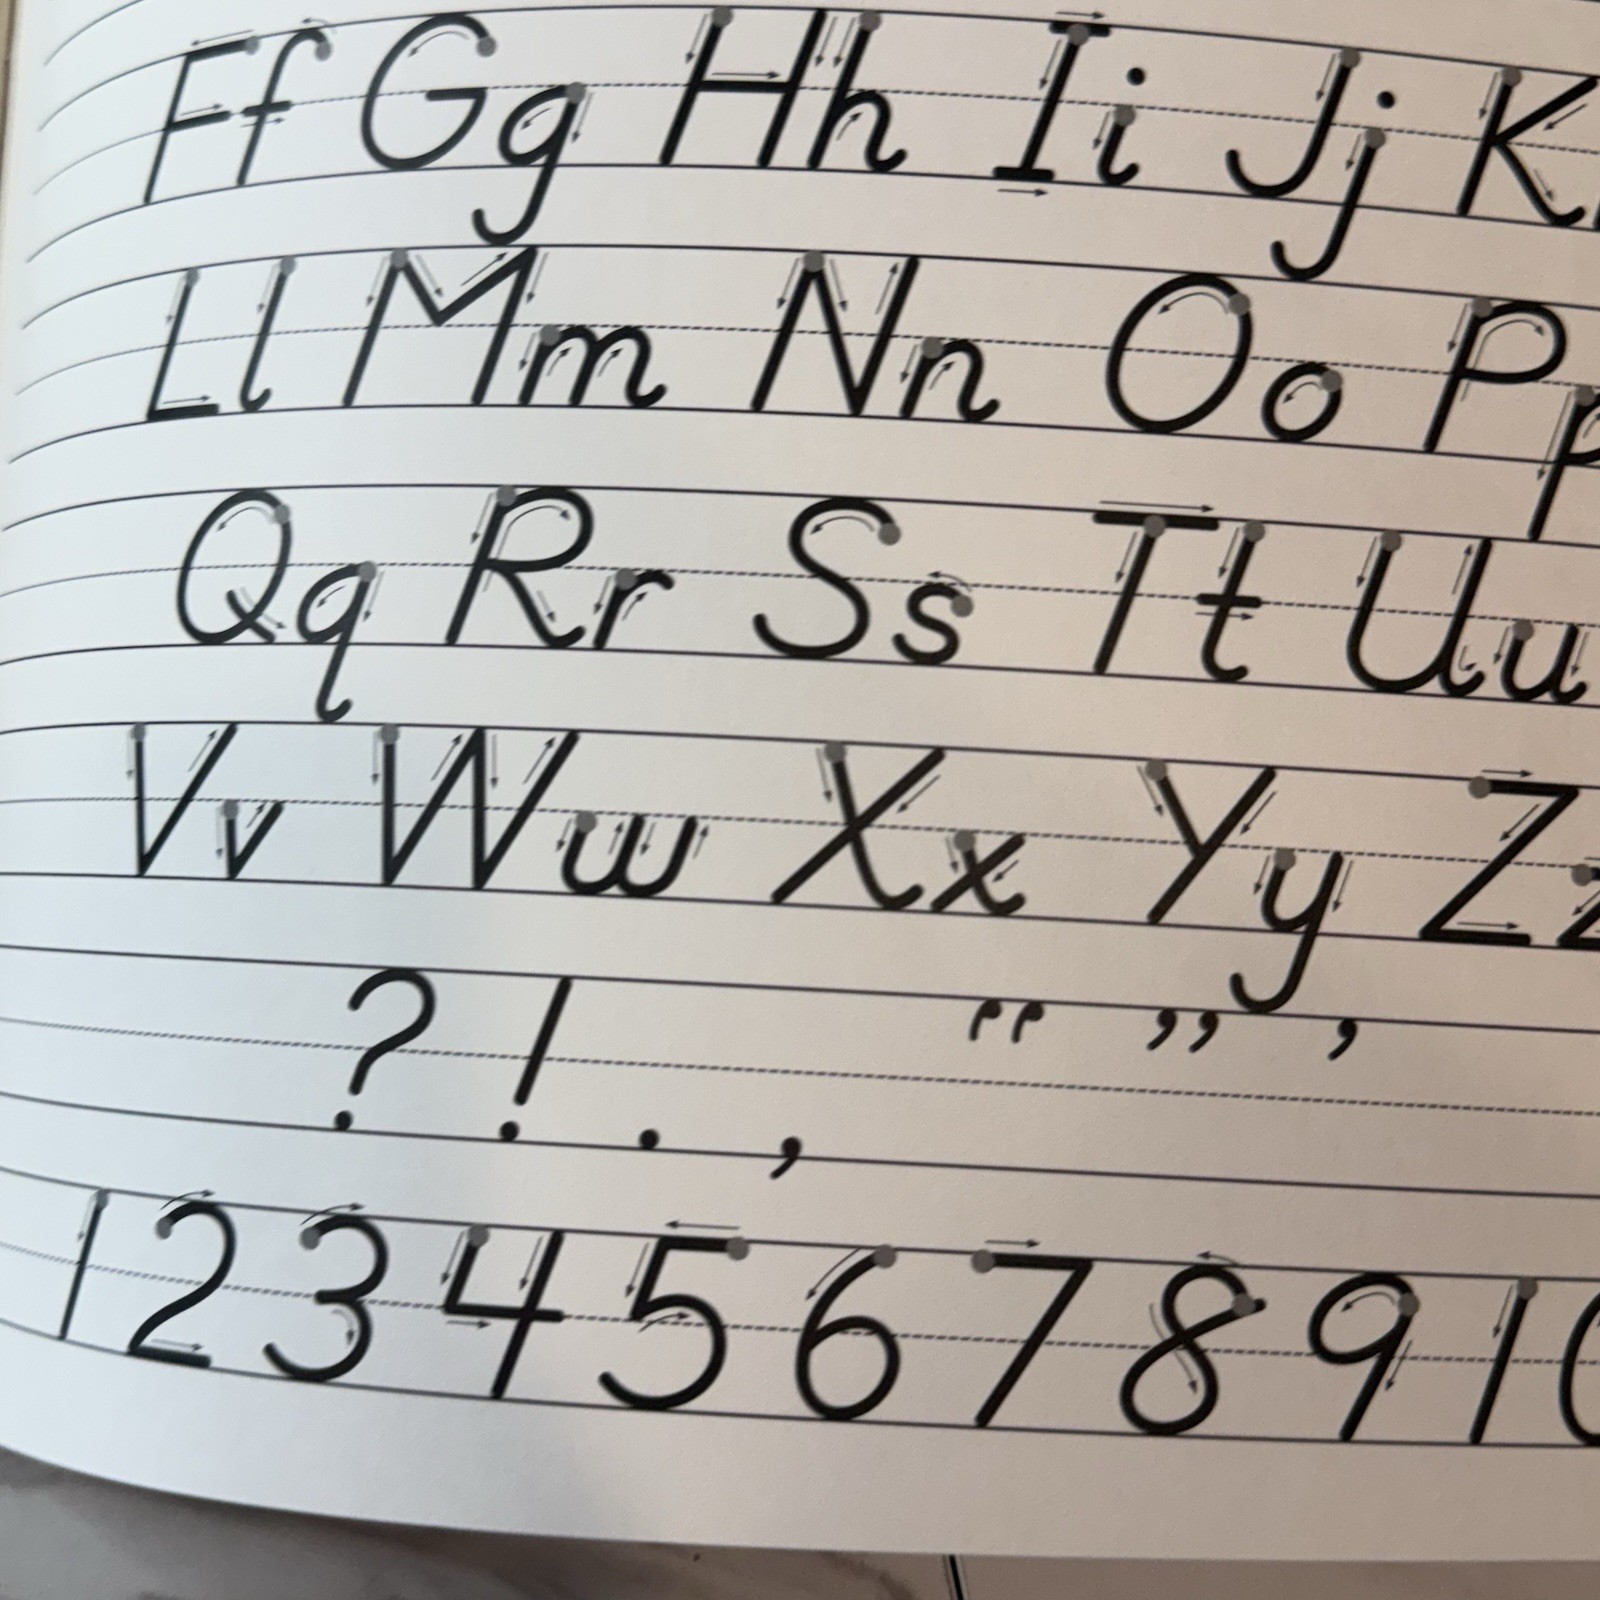 Ff Gg Hh Ii Jj K
Ll Mm Nn Oo Pp
Qq Rr Ss Tt Uu
Vv Ww Xx Yy Zz
? ! . , “ ” ’
1 2 3 4 5 6 7 8 9 10